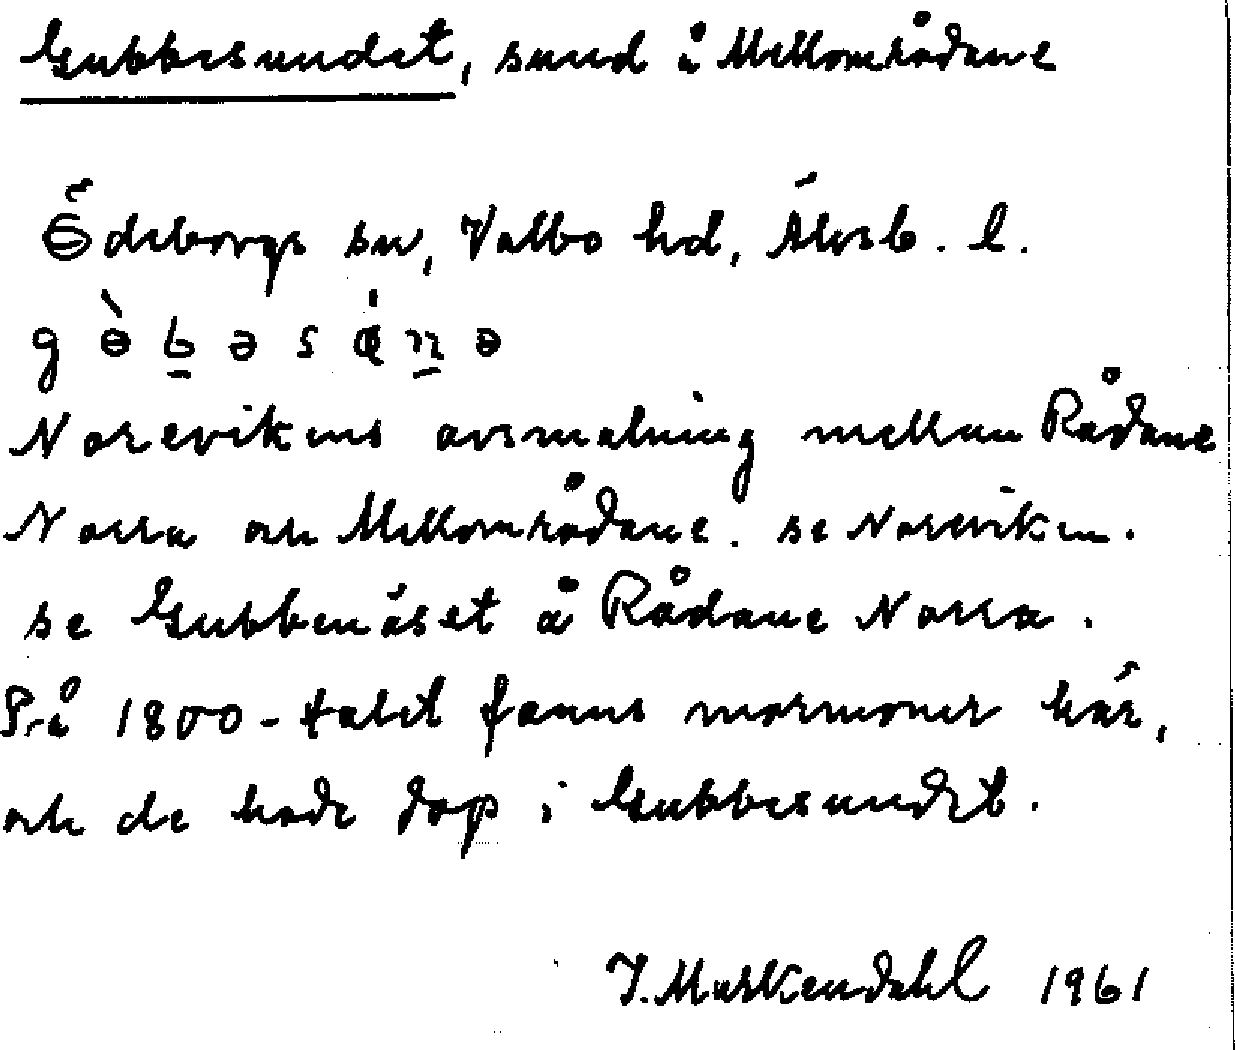 Gubbesundet, sund å Mellområdane
Ödeborgs sn, Valbo hd, Älvsb. l.
Norevikens avsmalning mellan Rådane
Norra och Mellområdane. se Noreviken.
se Gubbenäset å Rådane Norra.
På 1800-talet fanns mormoner här,
och de hade dop i Gubbesundet.
1961